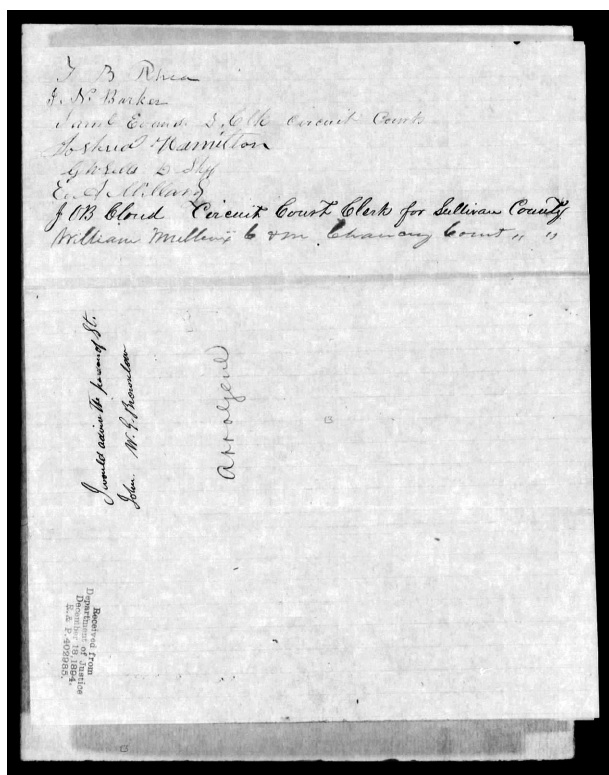 T B Rhea
J. N. Barker
Saml Evans D. Clk Circuit Court
Joshua Hamilton
G W Sells D Shff
E. A. Millard
J O B Cloud Circuit Court Clerk for Sullivan County
William Mullinix C & M. Chancery Court " "
I would advise the pardon of St.
John. W. G. Brownlow
Atto Genl
Received from
Department of Justice
December 18, 1894.
R. & P. 402985.